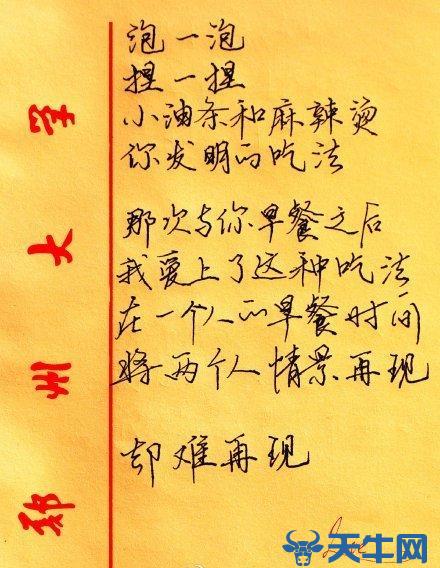 郑州大学
泡一泡
捏一捏
小油条和麻辣烫
你发明的吃法
那次与你早餐之后
我爱上了这种吃法
在一个人的早餐时间
将两个人情景再现
却难再现
天生网